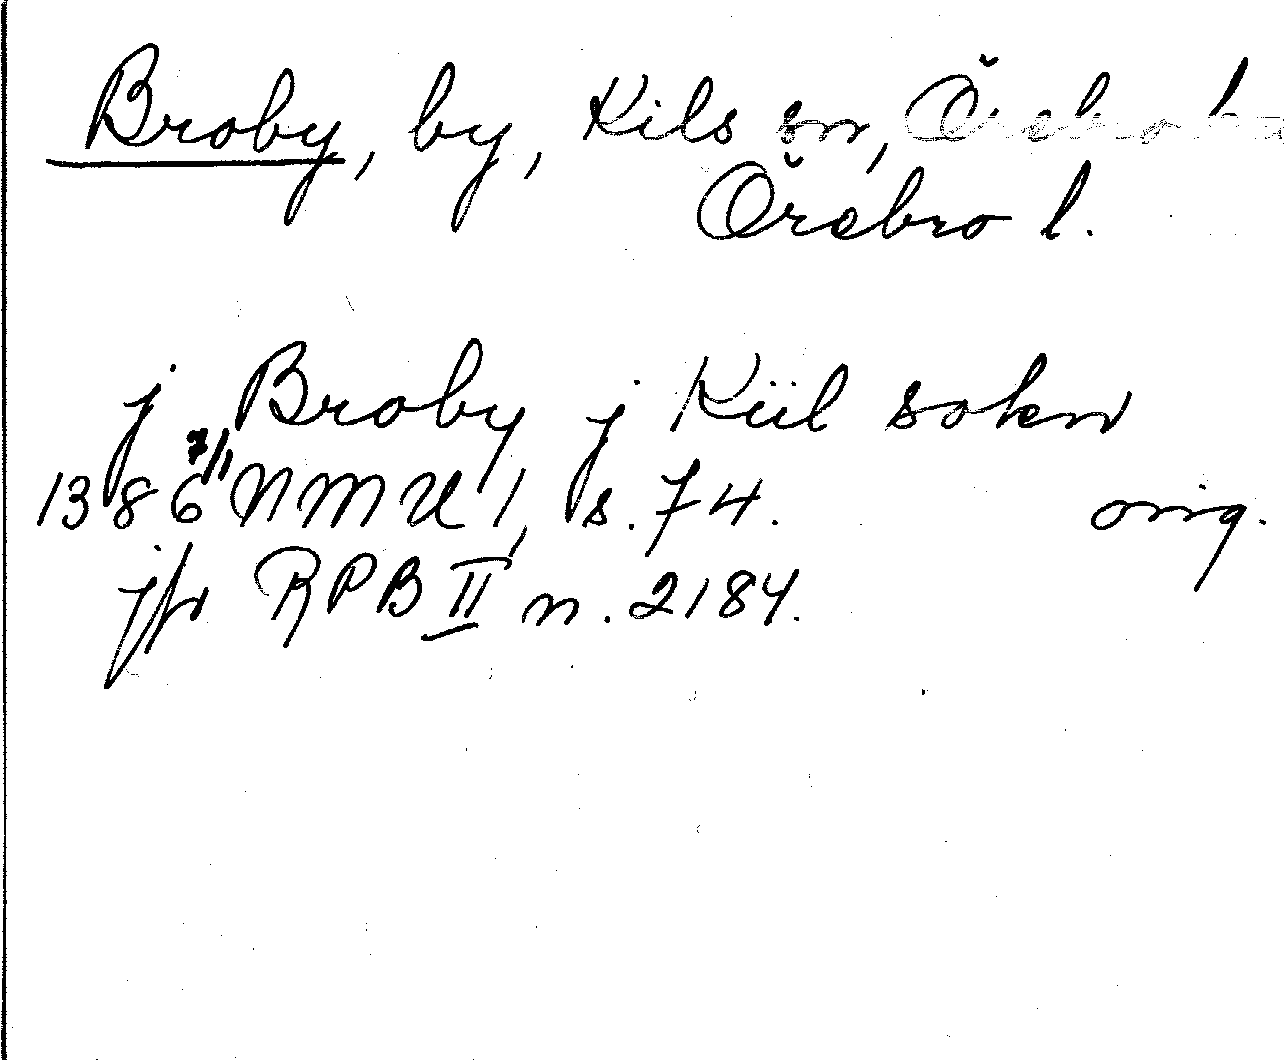 Broby, by, Kils sn, Örebro
Örebro l.
j Broby j Kiil sokn
1386 7/1 NMU 1, s. 74. orig.
jfr RPB II n. 2184.